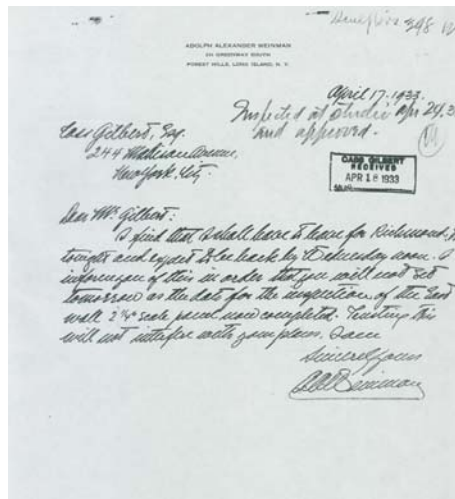 398
ADOLPH ALEXANDER WEINMAN
GREENWAY SOUTH
FOREST HILLS, LONG ISLAND, N. Y.
April 17-1933.
Inspected at studio Apr 24, 3
and approved.
Cass Gilbert, Esq.
244 Madison Avenue,
New York. City
CASS GILBERT
RECEIVED
APR 18 1933
Dear Mr. Gilbert:
I find that I shall have to leave for Richmond,
tonight and expect to be back by Wednesday noon. I
inform you of this in order that you will not set
tomorrow as the date for the inspection of the East
wall scale panel now completed. Trusting this
will not interfere with your plans. I am
Sincerely yours
A A Weinman